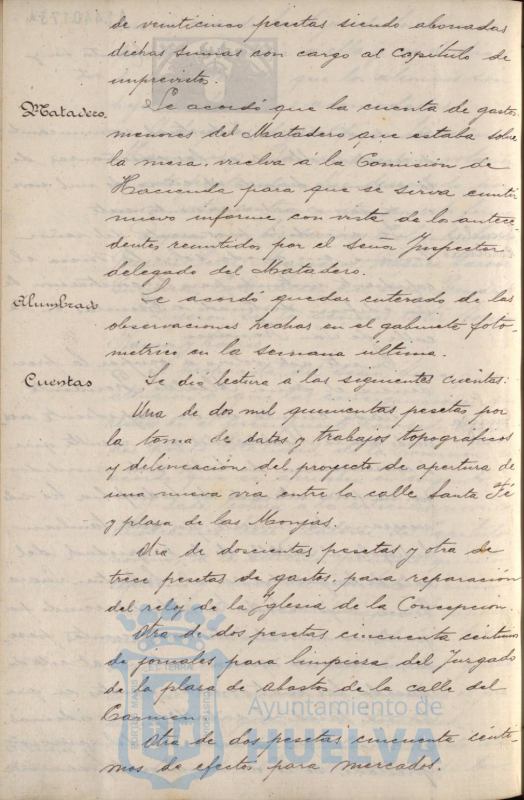 de veinticinco pesetas siendo abonadas
dichas sumas con cargo al Capítulo de
imprevistos.
Matadero. Se acordó que la cuenta de gastos
menores del Matadero que estaba sobre
la mesa vuelva a la Comisión de
Hacienda para que se sirva emitir
nuevo informe con vista de los antece-
dentes remitidos por el señor Inspector
delegado del Matadero.
Alumbrado Se acordó quedar enterado de las
observaciones hechas en el gabinete foto-
metrico en la semana ultima.
Cuentas Se dio lectura a las siguientes cuentas:
Una de dos mil quinientas pesetas por
la toma de datos y trabajos topográficos
y delineación del proyecto de apertura de
una nueva via entre la calle Santa Fé
y plaza de las Monjas.
Otra de doscientas pesetas y otra de
trece pesetas de gastos para reparación
del reloj de la Iglesia de la Concepción.
Otra de dos pesetas cincuenta céntimos
de jornales para limpieza del Juzgado
de la plaza de abastos de la calle del
Carmen.
Otra de dos pesetas cincuenta cénti-
mos de efectos para mercados.
Ayuntamiento de
HUELVA